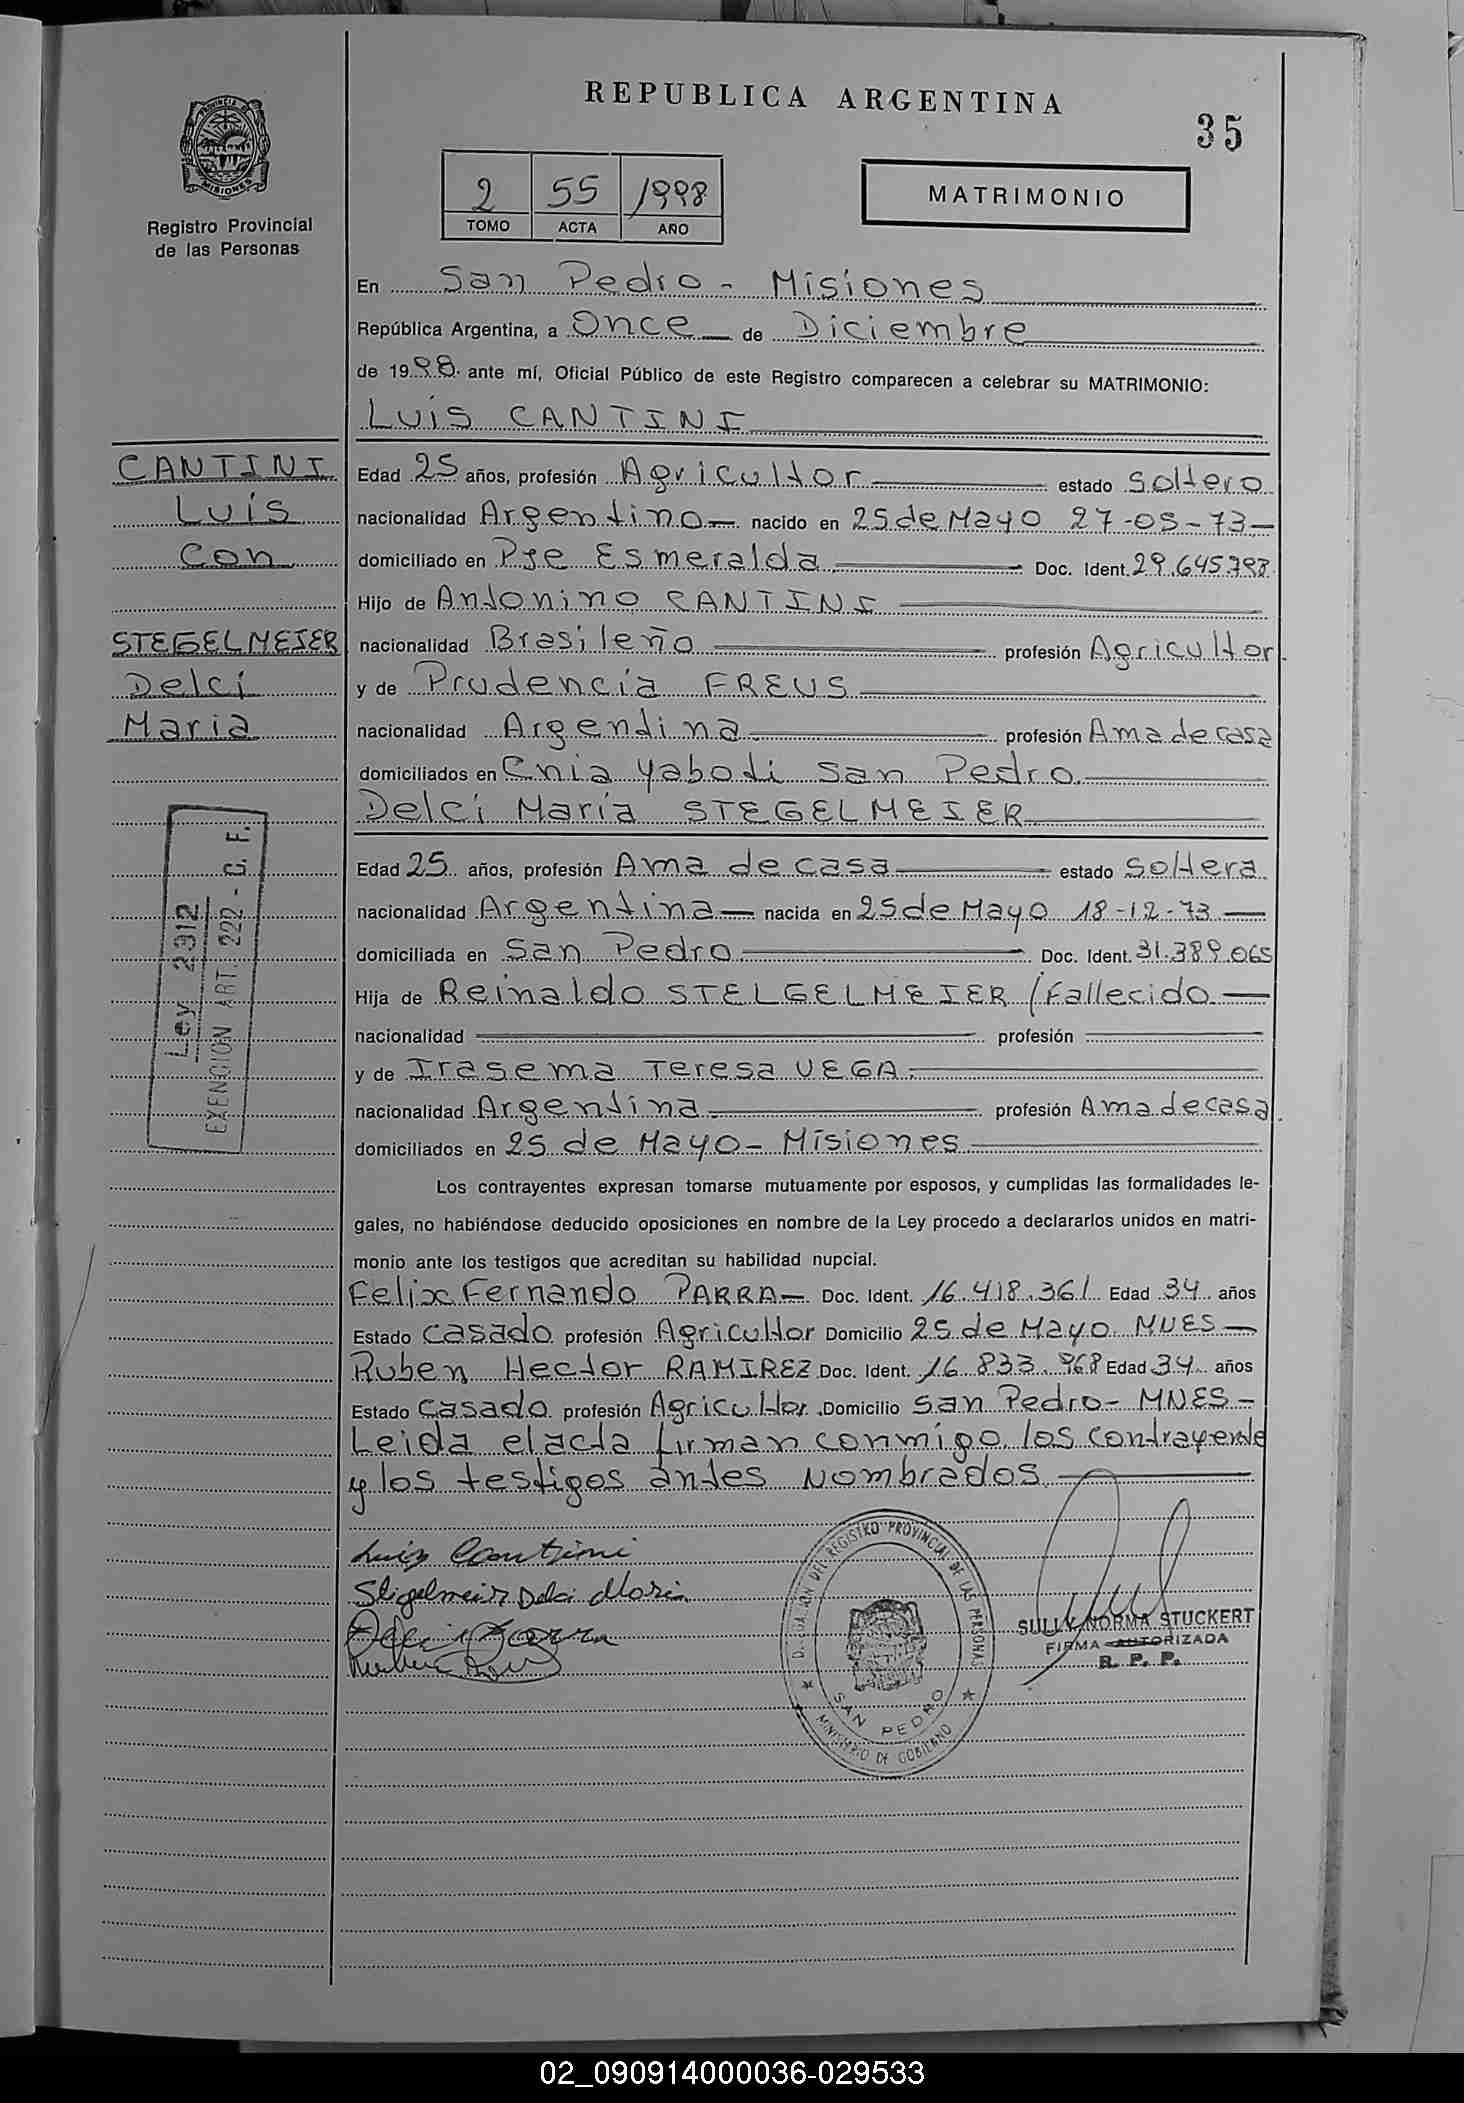 REPUBLICA ARGENTINA
35
PROVINCIA DE
MISIONES
Registro Provincial
de las Personas
2 55 1998
TOMO ACTA AÑO
MATRIMONIO
En San Pedro - Misiones
República Argentina, a Once de Diciembre
de 1998 ante mí, Oficial Público de este Registro comparecen a celebrar su MATRIMONIO:
Luis CANTINI
CANTINI
Luis
con
STEGELMEIER
Delci
Maria
Edad 25 años, profesión Agricultor estado Soltero
nacionalidad Argentino nacido en 25 de Mayo 27-05-73
domiciliado en Pje Esmeralda Doc. Ident. 29.645.798
Hijo de Antonino CANTINI
nacionalidad Brasileño profesión Agricultor
y de Prudencia FREUS
nacionalidad Argentina profesión Ama de casa
domiciliados en Cnia Yaboti San Pedro
Delci María STEGELMEIER
Edad 25 años, profesión Ama de casa estado Soltera
nacionalidad Argentina nacida en 25 de Mayo 18-12-73
domiciliada en San Pedro Doc. Ident. 31.389.065
Hija de Reinaldo STELGELMEIER (Fallecido
nacionalidad profesión
y de Irasema Teresa VEGA
nacionalidad Argentina profesión Ama de casa
domiciliados en 25 de Mayo - Misiones
Ley 2312
EXENCION ART. 222 - C. F.
Los contrayentes expresan tomarse mutuamente por esposos, y cumplidas las formalidades le-
gales, no habiéndose deducido oposiciones en nombre de la Ley procedo a declararlos unidos en matri-
monio ante los testigos que acreditan su habilidad nupcial.
Felix Fernando PARRA Doc. Ident. 16.418.361 Edad 34 años
Estado Casado profesión Agricultor Domicilio 25 de Mayo MNES
Ruben Hector RAMIREZ Doc. Ident. 16.833.968 Edad 34 años
Estado Casado profesión Agricultor Domicilio San Pedro - MNES -
Leida el acta firman conmigo los contrayente
y los testigos antes nombrados
Luis Cantini
Stegelmeier Delci Maria
DEL REGISTRO PROVINCIAL DE LAS PERSONAS
SAN PEDRO
MINISTERIO DE GOBIERNO
SULLY NORMA STUCKERT
FIRMA AUTORIZADA
R. P. P.
02_090914000036-029533